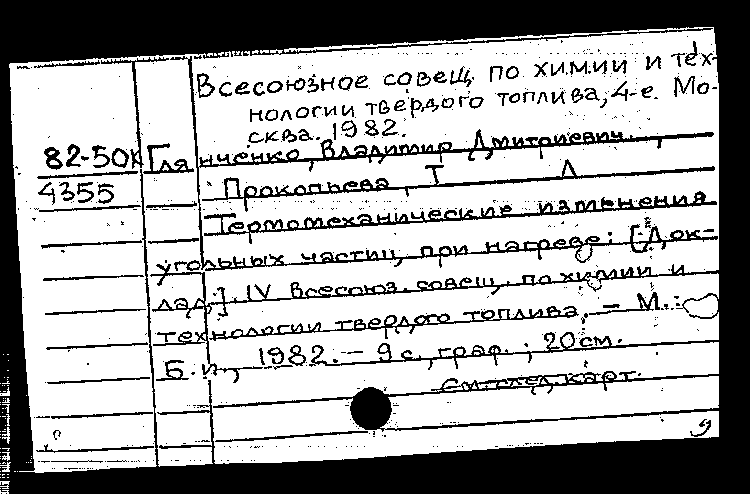 Всесоюзное совещ. по химии и тех-
нологии твёрдого топлива, 4-е. Мо-
сква. 1982.
82-50К Глянченко, Владимир Дмитриевич,
4355 Прокопьева, Т Л
Термомеханические изменения
угольных частиц при нагреве: [Док-
лад]. IV Всесоюз. совещ. по химии и
технологии твердого топлива. – М.:
Б.и., 1982. – 9 с., граф.; 20 см.
См. след. карт.
9